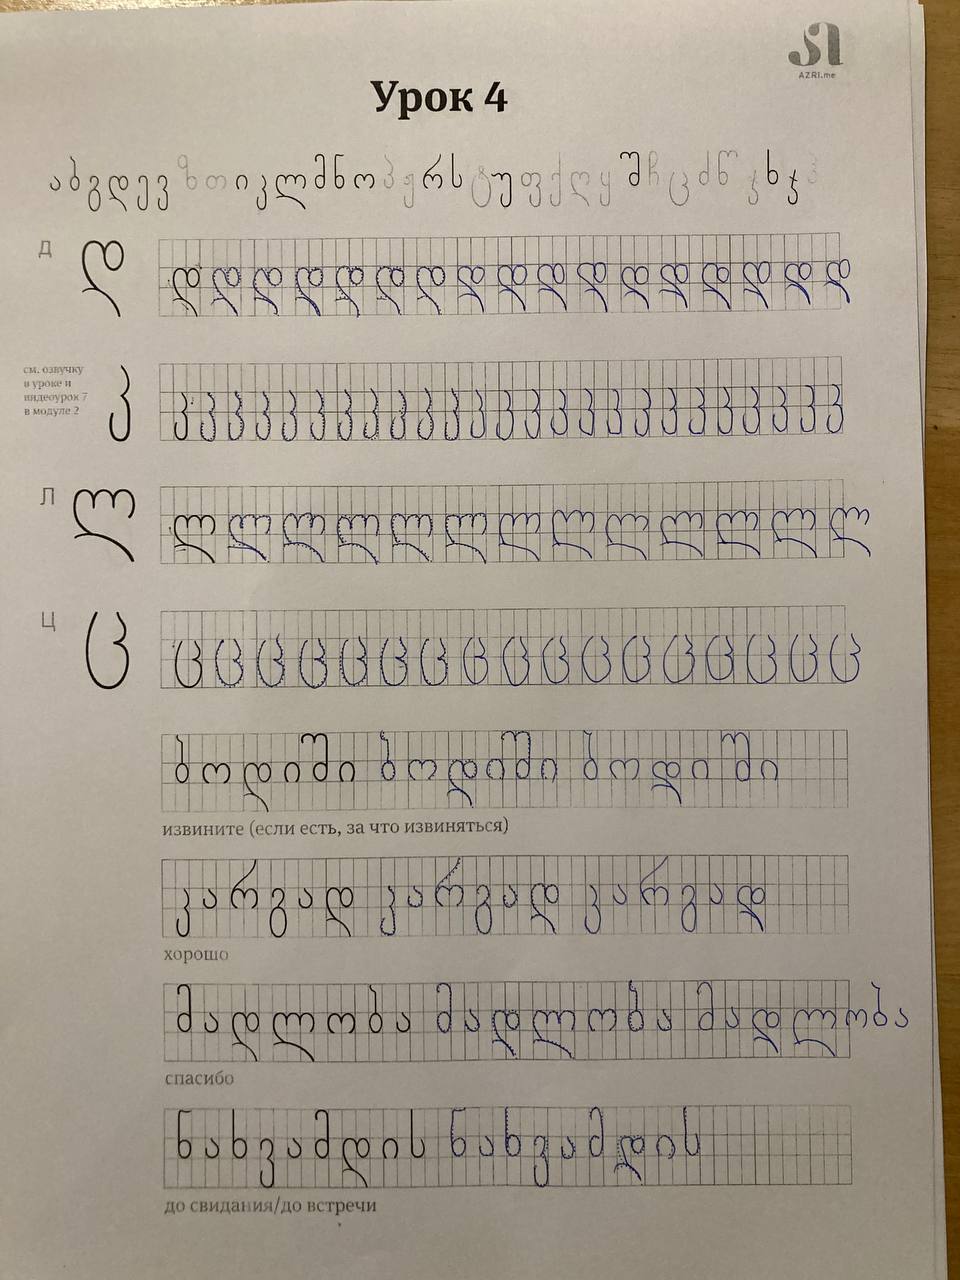 AZRI.me
Урок 4
ა ბ გ დ ე ვ ზ თ ი კ ლ მ ნ ო პ ჟ რ ს ტ უ ფ ქ ღ ყ შ ჩ ც ძ წ ჭ ხ ჯ ჰ
Д დ დ დ დ დ დ დ დ დ დ დ დ დ დ დ დ დ დ
см. озвучку
в уроке и
видеоурок 7
в модуле 2
კ კ კ კ კ კ კ კ კ კ კ კ კ კ კ კ კ კ კ კ კ კ კ კ კ კ
Л ლ ლ ლ ლ ლ ლ ლ ლ ლ ლ ლ ლ ლ ლ
Ц ც ც ც ც ც ც ც ც ც ც ც ც ც ც ც ც ც ც
ბოდიში ბოდიში ბოდიში
извините (если есть, за что извиняться)
კარგად კარგად კარგად
хорошо
მადლობა მადლობა მადლობა
спасибо
ნახვამდის ნახვამდის
до свидания/до встречи